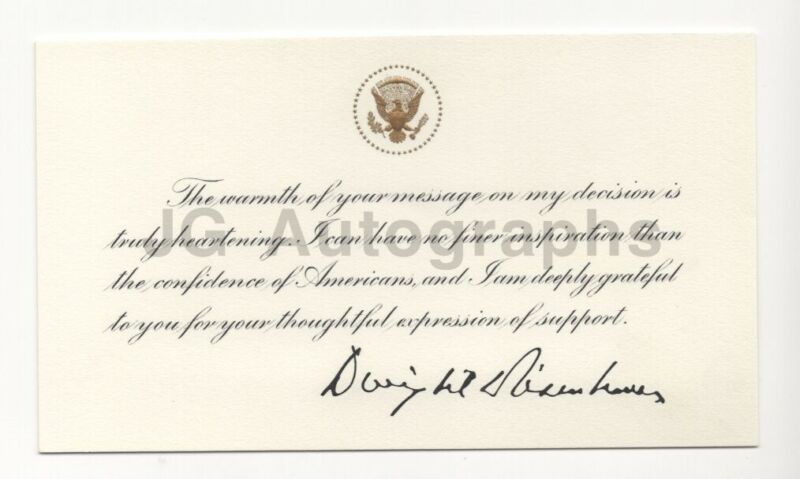 The warmth of your message on my decision is
truly heartening. I can have no finer inspiration than
the confidence of Americans, and I am deeply grateful
to you for your thoughtful expression of support.
Dwight D Eisenhower
JG Autographs